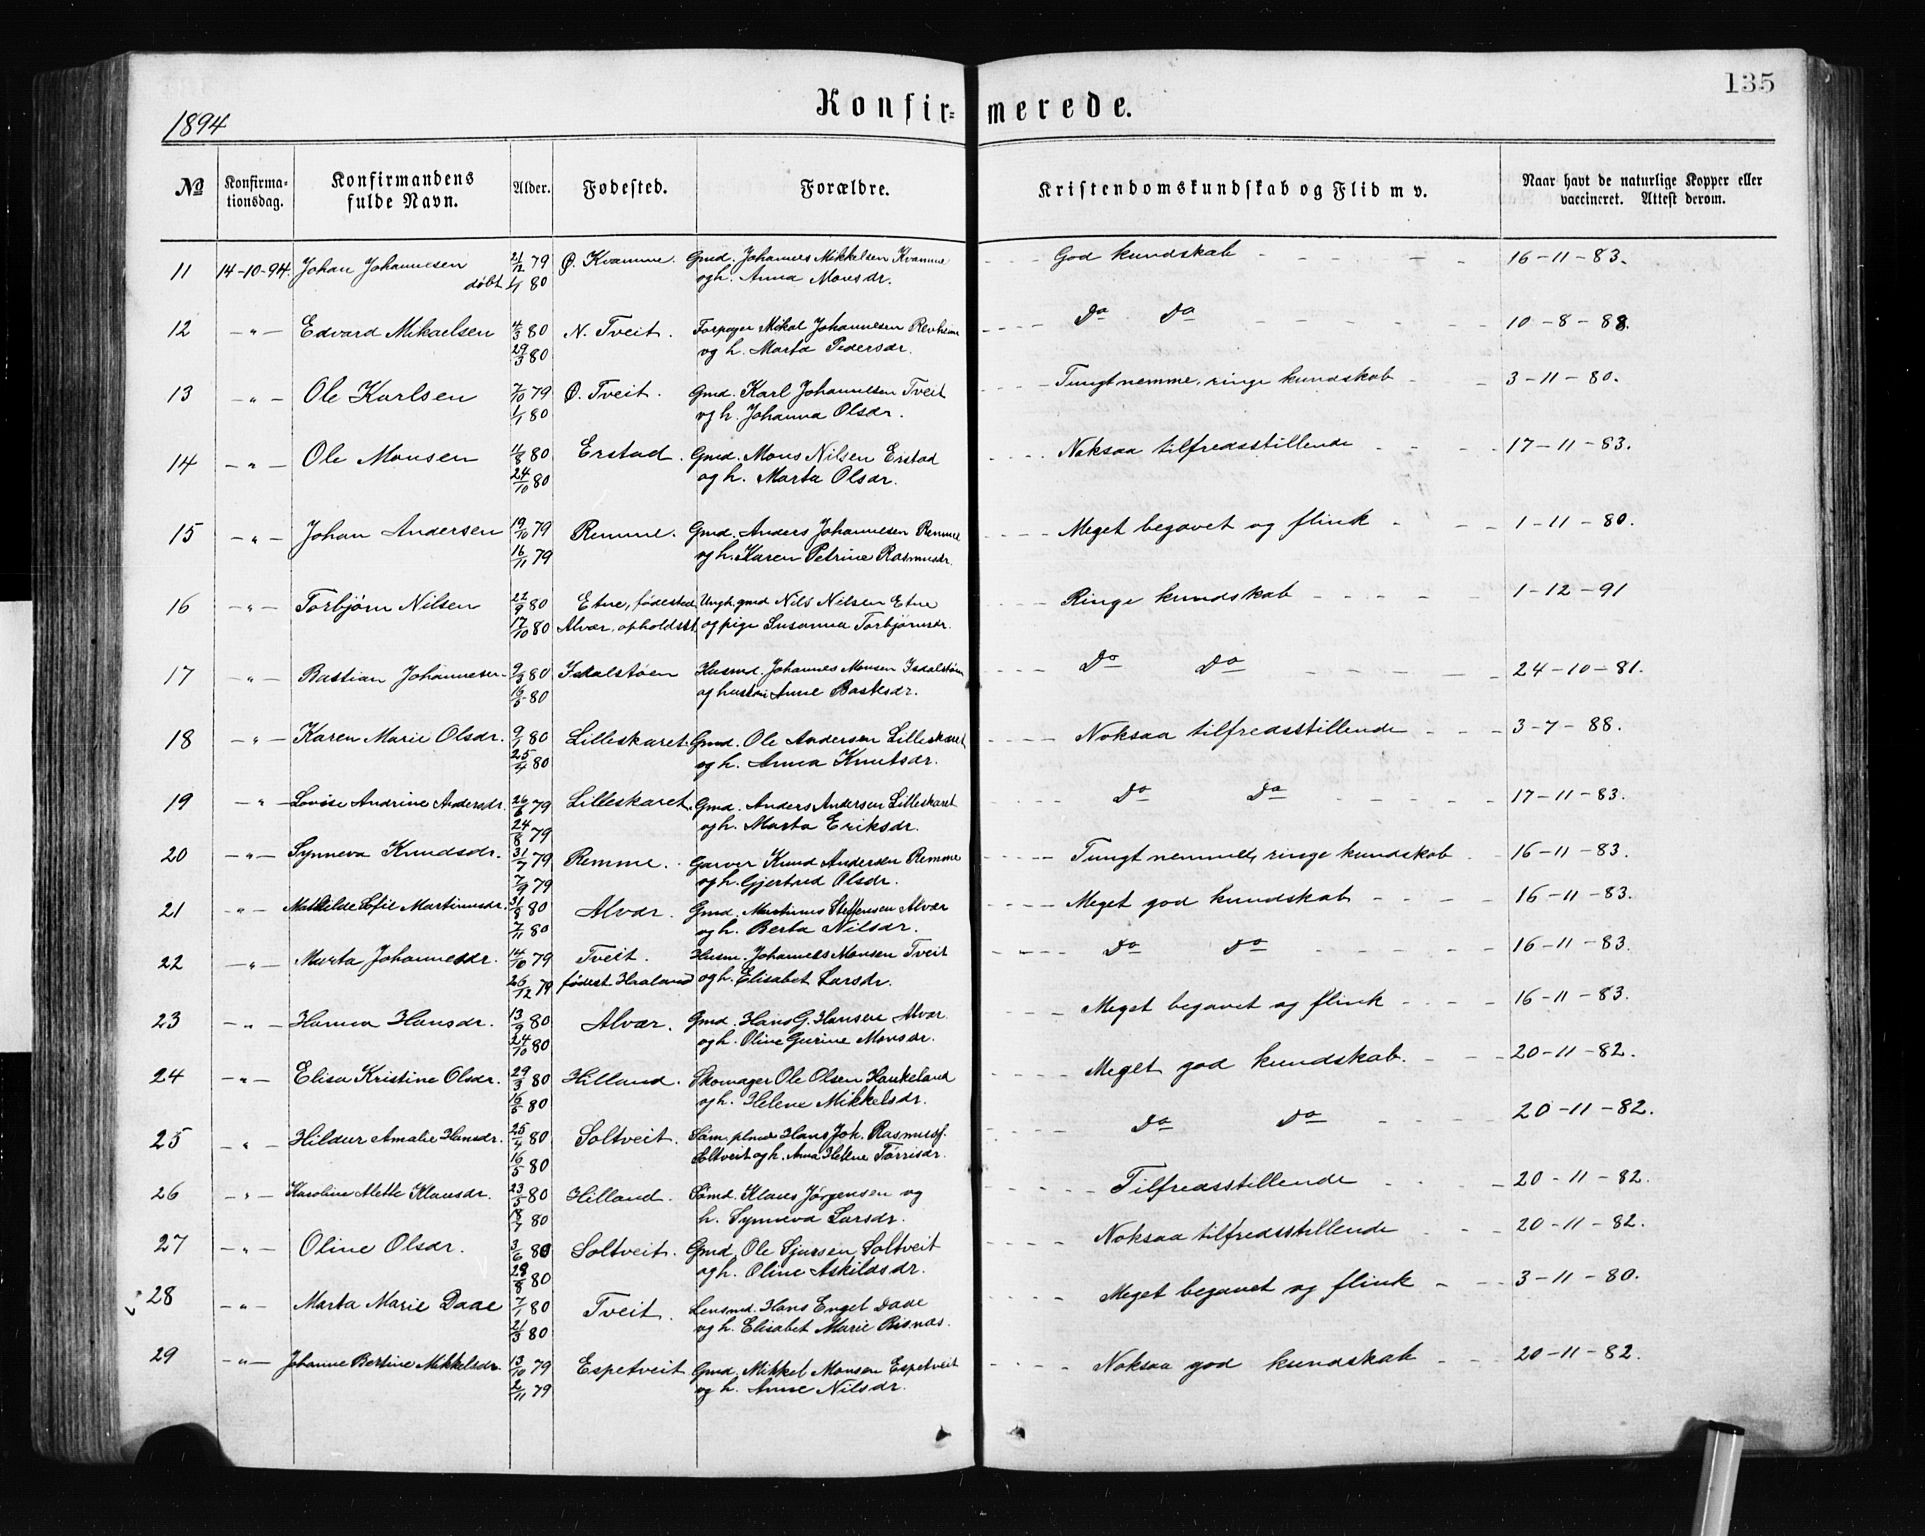 135
1894
Konfir= merede.
No Konfirma-tionsdag. Konfirmandens fulde Navn. Alder. Fødested. Forældre. Kristendomskundskab og Flid m v. Naar havt de naturlige Kopper eller vaccineret. Attest derom.
11 14-10-94. Johan Johannesen 21/12 79 Ø. Kvamme. Gmd. Johannes Mikkelsen Kvamme God kundskab 16-11-83.
døbt 1/1 80 og h. Anna Monsdr.
12 -"- Edvard Mikaelsen 4/3 80 N. Tveit. Forpagter Mikal Johannesen Revheim Do Do 10-8-88.
29/3 80 og h. Marta Pedersdr.
13 -"- Ole Karlsen 7/10 79 Ø. Tveit. Gmd. Karl Johannesen Tveit Tungt nemme, ringe kundskab 3-11-80.
1/1 80 og h. Johanna Olsdr.
14 -"- Ole Monsen 11/8 80 Erstad. Gmd. Mons Nilsen Erstad Noksaa tilfredsstillende 17-11-83.
24/10 80 og h. Marta Olsdr.
15 -"- Johan Andersen 19/10 79 Remme. Gmd. Anders Johannesen Remme Meget begavet og flink 1-11-80.
16/11 79 og h. Karen Petrine Rasmusdr.
16 -"- Torbjørn Nilsen 22/9 80 Etne, fødested Ungk. gmd Nils Nilsen Etne Ringe kundskab 1-12-91
17/10 80 Alvær, opholdsst. og pige Susanna Torbjørnsdr.
17 -"- Bastian Johannesen 9/3 80 Isdalstøen Husmd. Johannes Monsen Isdalstøen Do Do 24-10-81.
16/5 80 og hustru Anne Bastesdr.
18 -"- Karen Marie Olsdr. 9/1 80 Lilleskaret. Gmd. Ole Andersen Lilleskaret Noksaa tilfredsstillende 3-7-88.
25/4 80 og h. Anna Knutsdr.
19 -"- Lovise Andrine Andersdr. 26/6 79 Lilleskaret. Gmd. Anders Andersen Lilleskaret Do Do 17-11-83.
24/8 79 og h. Marta Eriksdr.
20 -"- Synneva Knudsdr. 31/7 79 Remme. Garver Knud Andersen Remme Tungt nemmet, ringe kundskab 16-11-83.
7/9 79 og h. Gjertrud Olsdr.
21 -"- Mathilde Sofie Martinusdr. 31/8 80 Alvær. Gmd. Martinus Steffensen Alvær Meget god kundskab 16-11-83.
7/11 80 og h. Berta Nilsdr.
22 -"- Marta Johannesdr. 14/10 79 Tveit. Husm. Johannes Monsen Tveit Do Do 16-11-83.
26/12 79 fødest Haaland og h. Elisabet Larsdr.
23 -"- Hanna Hansdr. 13/9 80 Alvær. Gmd. Hans G. Hansen Alvær Meget begavet og flink 16-11-83.
24/10 80 og h. Oline Gurine Monsdr.
24 -"- Elisa Kristine Olsdr. 29/3 80 Hilland. Skomager Ole Olsen Haukeland Meget god kundskab. 20-11-82.
16/5 80 og h. Helene Mikkelsdr.
25 -"- Hildur Amalie Hansdr. 25/4 80 Soltveit. Hans Joh. Rasmussf. Do Do 20-11-82.
16/5 80 Soltveit og h. Anna Helene Torrisdr.
26 -"- Karoline Alette Klausdr. 23/5 80 Hilland. Klaus Jørgensen og Tilfredsstillende 20-11-82.
18/7 80 h. Synneva Larsdr.
27 -"- Oline Olsdr. 3/6 80 Soltveit. Gmd. Ole Sjursen Soltveit Noksaa tilfredsstillende 20-11-82.
29/8 80 og h. Oline Askildsdr.
28 -"- Marta Marie Daae 7/1 80 Tveit. Lensmd. Hans Engel Daae Meget begavet og flink 3-11-80.
21/3 80 og h. Elisabet Marie Risnæs.
29 -"- Johanne Bertine Mikkelsdr. 13/10 79 Espetveit Gmd. Mikkel Monsen Espetveit Noksaa god kundskab 20-11-82.
2/11 79 og h. Anne Nilsdr.